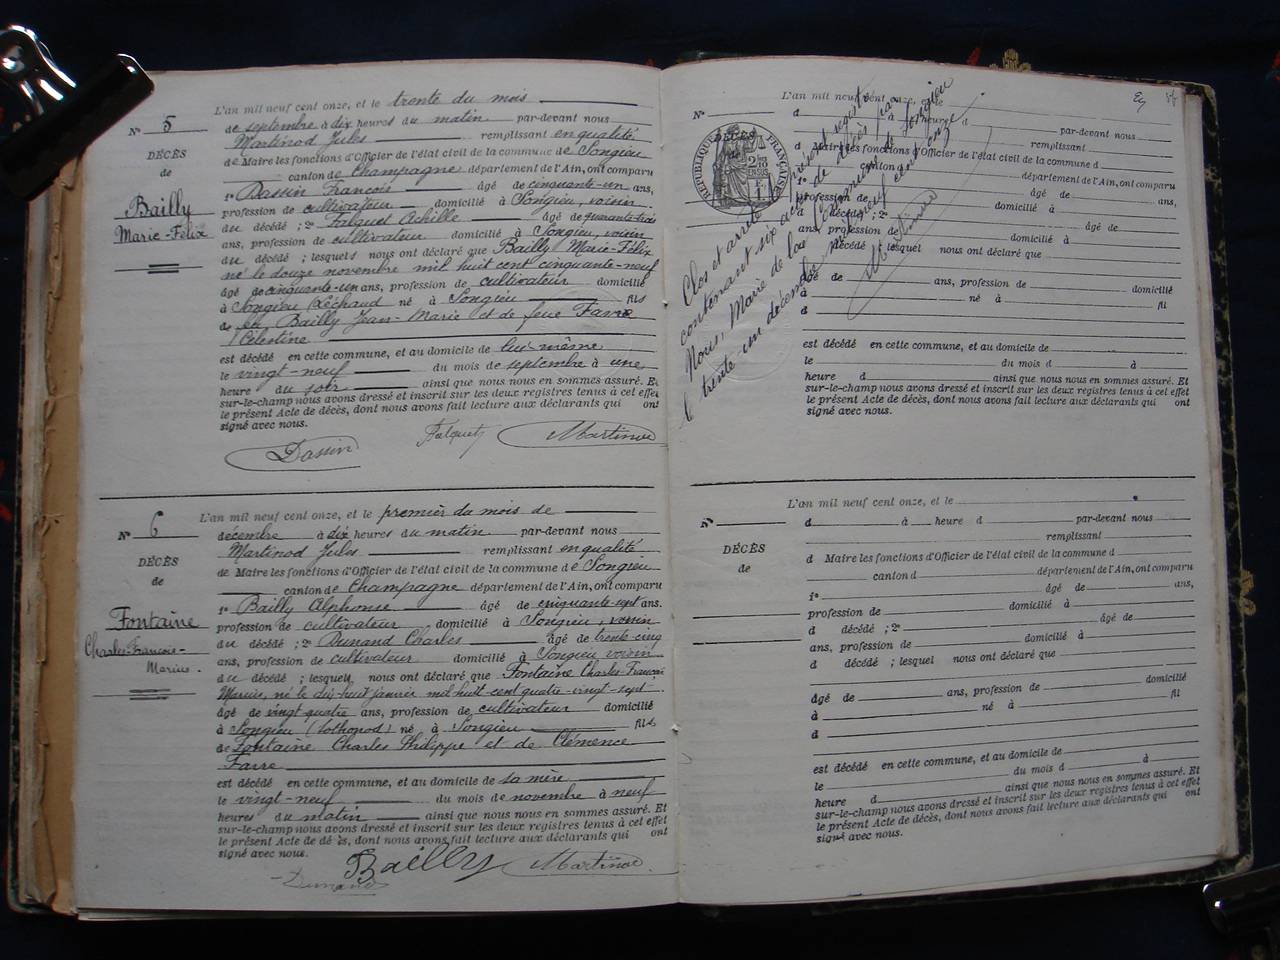 L'an mil neuf cent onze, et le trente du mois
N° 5
de septembre à dix heures du matin par-devant nous
Martinod Jules remplissant en qualité
DÉCÈS
de Maire les fonctions d'Officier de l'état civil de la commune de Songieu
de
canton de Champagne département de l'Ain, ont comparu
1° Dassin François âgé de cinquante-un ans,
Bailly
profession de cultivateur domicilié à Songieu, voisin
Marie-Félix
du décédé ; 2° Falquet Achille âgé de quarante-trois
ans, profession de cultivateur domicilié à Songieu, voisin
du décédé ; lesquels nous ont déclaré que Bailly Marie-Félix
né le douze novembre mil huit cent cinquante-neuf
âgé de cinquante-un ans, profession de cultivateur domicilié
à Songieu né à Songieu fils
de feu Bailly Jean-Marie et de feue Favre
Célestine
est décédé en cette commune, et au domicile de lui-même
le vingt-neuf du mois de septembre à une
heure du soir ainsi que nous nous en sommes assuré. Et
sur-le-champ nous avons dressé et inscrit sur les deux registres tenus à cet effet
le présent Acte de décès, dont nous avons fait lecture aux déclarants qui ont
signé avec nous.
Dassin Falquet Martinod
L'an mil neuf cent onze, et le premier du mois de
N° 6
décembre à dix heures du matin par-devant nous
Martinod Jules remplissant en qualité
DÉCÈS
de Maire les fonctions d'Officier de l'état civil de la commune de Songieu
de
canton de Champagne département de l'Ain, ont comparu
1° Bailly Alphonse âgé de cinquante-sept ans.
Fontaine
profession de cultivateur domicilié à Songieu, voisin
Charles-François-
du décédé ; 2° Dunand Charles âgé de trente-cinq
Marius.
ans, profession de cultivateur domicilié à Songieu voisin
du décédé ; lesquels nous ont déclaré que Fontaine Charles-François
Marius, né le dix huit janvier mil huit cent quatre-vingt-sept
âgé de vingt quatre ans, profession de cultivateur domicilié
à Songieu (Lothonod) né à Songieu fils
de Fontaine Charles Philippe et de Clémence
Favre
est décédé en cette commune, et au domicile de sa mère
le vingt-neuf du mois de novembre à neuf
heures du matin ainsi que nous nous en sommes assuré. Et
sur-le-champ nous avons dressé et inscrit sur les deux registres tenus à cet effet
le présent Acte de décès, dont nous avons fait lecture aux déclarants qui ont
signé avec nous.
Dunand Bailly Martinod
L'an mil neuf cent onze, et le
N°
d à heure d par-devant nous
remplissant
DÉCÈS
de
d Maire les fonctions d'Officier de l'état civil de la commune d
canton d département de l'Ain, ont comparu
RÉPUBLIQUE FRANÇAISE
1° âgé de ans,
profession de domicilié à
d décédé ; 2° âgé de
ans, profession de domicilié à
d décédé ; lesquel nous ont déclaré que
âgé de ans, profession de domicilié
à né à fil
d
est décédé en cette commune, et au domicile de
le du mois d à
heure d ainsi que nous nous en sommes assuré. Et
sur-le-champ nous avons dressé et inscrit sur les deux registres tenus à cet effet
le présent Acte de décès, dont nous avons fait lecture aux déclarants qui ont
signé avec nous.
Clos et arrêté le présent
contenant six actes de décès par
Nous, Maire de la Commune de Songieu
le trente un décembre mil neuf cent onze
Martinod
L'an mil neuf cent onze, et le
N°
d à heure d par-devant nous
remplissant
DÉCÈS
d Maire les fonctions d'Officier de l'état civil de la commune d
de
canton d département de l'Ain, ont comparu
1° âgé de ans,
profession de domicilié à
d décédé ; 2° âgé de
ans, profession de domicilié à
d décédé ; lesquel nous ont déclaré que
âgé de ans, profession de domicilié
à né à fil
d
est décédé en cette commune, et au domicile de
le du mois d à
heure d ainsi que nous nous en sommes assuré. Et
sur-le-champ nous avons dressé et inscrit sur les deux registres tenus à cet effet
le présent Acte de décès, dont nous avons fait lecture aux déclarants qui ont
signé avec nous.